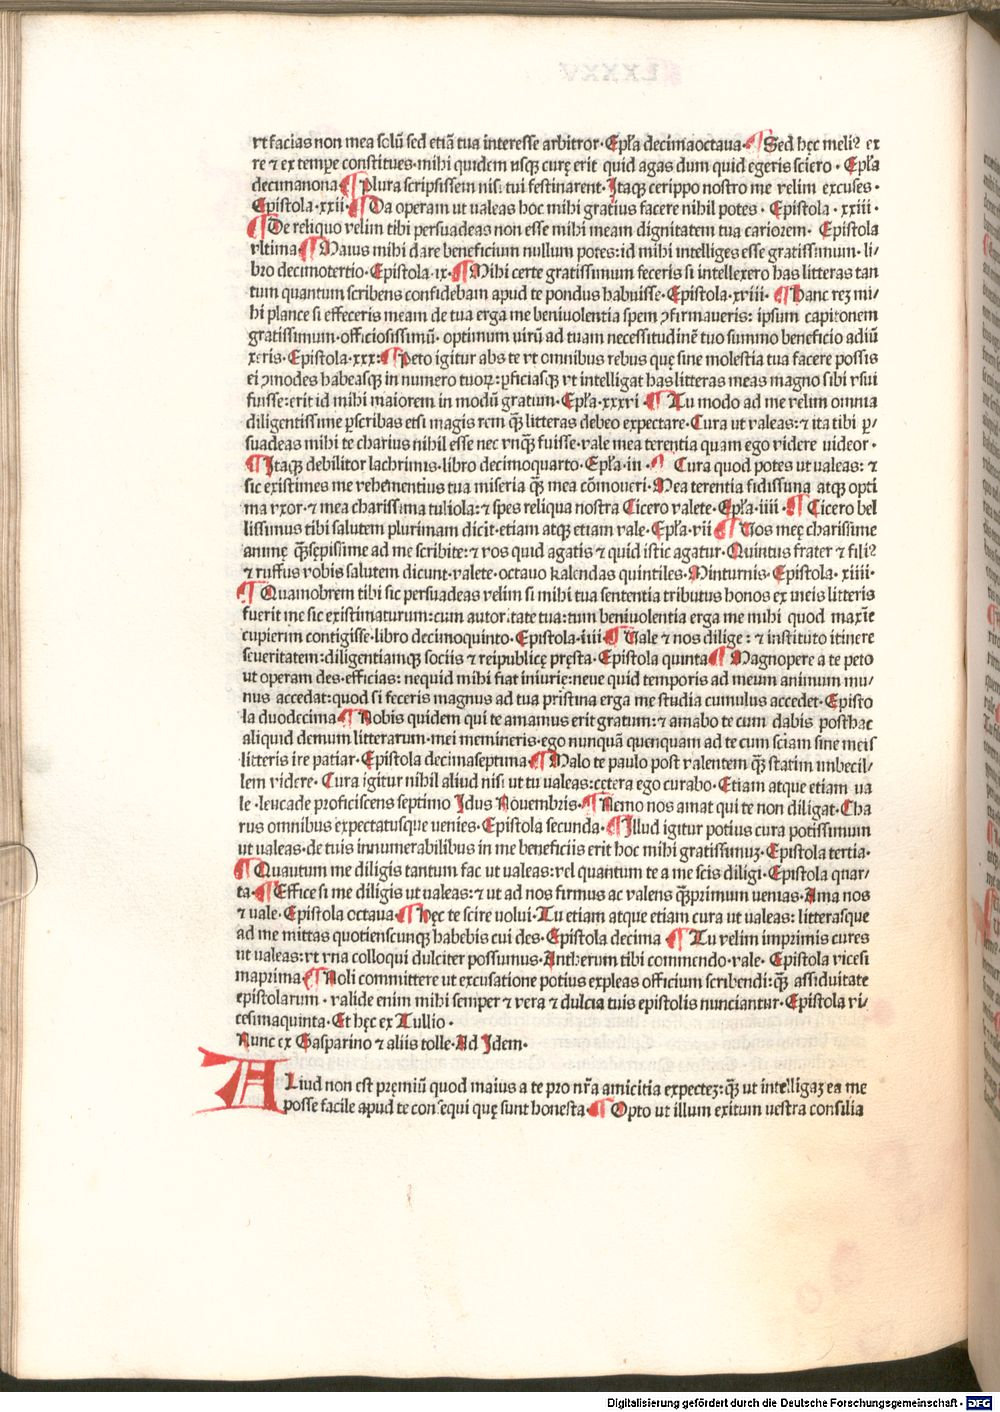 vt facias non mea solū sed etiā tua interesse arbitror· Epl̄a decimaoctaua· ¶ Sed hęc meliꝰ ex
re ⁊ ex tempore constitues· mihi quidem usqꝫ curę erit quid agas dum quid egeris sciero· Epl̄a
decimanona ¶ Plura scripsissem nisi tui festinarent· Itaqꝫ cerippo nostro me velim excuses·
Epistola·xxii· ¶ Da operam ut valeas hoc mihi gratius facere nihil potes· Epistola·xxiii·
¶ De reliquo velim tibi persuadeas non esse mihi meam dignitatem tua cariorem· Epistola
vltima· ¶ Maius mihi dare beneficium nullum potes: id mihi intelliges esse gratissimum· li/
bro decimotertio· Epistola·ix· ¶ Mihi certe gratissimum feceris si intellexero has litteras tan
tum quantum scribens confidebam apud te pondus habuisse· Epistola·xviii· ¶ Hanc reꝫ mi/
hi plance si effeceris meam de tua erga me beniuolentia spem ꝯfirmaueris: ipsum capitonem
gratissimum· officiosissimū· optimum virū ad tuam necessitudinē tuo summo beneficio adiū
xeris· Epistola·xxx: ¶ Peto igitur abs te vt omnibus rebus quę sine molestia tua facere possis
ei ꝯmodes habeasqꝫ in numero tuoꝝ: ꝑficiasqꝫ vt intelligat has litteras meas magno sibi vsui
fuisse: erit id mihi maiorem in modū gratum· Epl̄a·xxxvi· ¶ Tu modo ad me velim omnia
diligentissime ꝑscribas etsi magis rem qꝫ̄ litteras debeo expectare· Cura ut valeas: ⁊ ita tibi ꝑ/
suadeas mihi te charius nihil esse nec vnqꝫ̄ fuisse· vale mea terentia quam ego videre videor·
¶ Itaqꝫ debilitor lachrimis· libro decimoquarto· Epl̄a·iii· ¶ Cura quod potes ut valeas: ⁊
sic existimes me vehementius tua miseria qꝫ̄ mea cōmoueri· Mea terentia fidissima atqꝫ opti
ma vxor· ⁊ mea charissima tuliola: ⁊ spes reliqua nostra Cicero valete· Epl̄a·iiii· ¶ Cicero bel
lissimus tibi salutem plurimam dicit· etiam atqꝫ etiam vale· Epl̄a·vii ¶ Vos meę charissime
animę qꝫ̄sępissime ad me scribite: ⁊ vos quid agatis ⁊ quid istic agatur· Quintus frater ⁊ filiꝰ
⁊ ruffus vobis salutem dicunt· valete· octauo kalendas quintiles· Minturnis· Epistola·xiiii·
¶ Quamobrem tibi sic persuadeas velim si mihi tua sententia tributus honos ex meis litteris
fuerit me sic existimaturum: cum autoritate tua: tum beniuolentia erga me mihi quod maxīe
cupierim contigisse· libro decimoquinto· Epistola·iiii· ¶ Vale ⁊ nos dilige: ⁊ instituto itinere
seueritatem: diligentiamqꝫ sociis ⁊ reipublicę pręsta· Epistola quinta ¶ Magnopere a te peto
ut operam des· efficias: nequid mihi fiat iniurię: neue quid temporis ad meum animum mu/
nus accedat: quod si feceris magnus ad tua pristina erga me studia cumulus accedet· Episto
la duodecima· ¶ Nobis quidem qui te amamus erit gratum: ⁊ amabo te cum dabis posthac
aliquid demum litterarum· mei memineris· ego nunquā quenquam ad te cum sciam sine meis
litteris ire patiar· Epistola decimaseptima· ¶ Malo te paulo post valentem qꝫ̄ statim imbecil/
lem videre· Cura igitur nihil aliud nisi ut tu ualeas: cętera ego curabo· Etiam atque etiam ua
le·leucade proficiscens septimo Idus Nouembris· ¶ Nemo nos amat qui te non diligat· Cha
rus omnibus expectatusque uenies· Epistola secunda· ¶ Illud igitur potius cura potissimum
ut ualeas· de tuis innumerabilibus in me beneficiis erit hoc mihi gratissimuꝫ· Epistola tertia·
¶ Quautum me diligis tantum fac ut ualeas: vel quantum te a me scis diligi· Epistola quar-
ta· ¶ Effice si me diligis ut ualeas: ⁊ ut ad nos firmus ac valens qꝫ̄primum uenias· Ama nos
⁊ uale· Epistola octaua· ¶ Hęc te scire uolui· Tu etiam atque etiam cura ut ualeas: litterasque
ad me mittas quotienscunqꝫ habebis cui des· Epistola decima ¶ Tu velim imprimis cures
ut ualeas: vt vna colloqui dulciter possumus· Antherum tibi commendo· vale· Epistola vicesi
maprima· ¶ Noli committere ut excusatione potius expleas officium scribendi: qꝫ̄ assiduitate
epistolarum· valide enim mihi semper ⁊ vera ⁊ dulcia tuis epistolis nunciantur· Epistola vi/
cesimaquinta· Et hęc ex Tullio·
Nunc ex Gasparino ⁊ aliis tolle· Ad Idem·
ALiud non est pręmiū quod maius a te pro nr̄a amicitia expecteꝫ: qꝫ̄ ut intelligaꝫ ea me
posse facile apud te consequi quę sunt honesta· ¶ Opto ut illum exitum uestra consilia
Digitalisierung gefördert durch die Deutsche Forschungsgemeinschaft - DFG